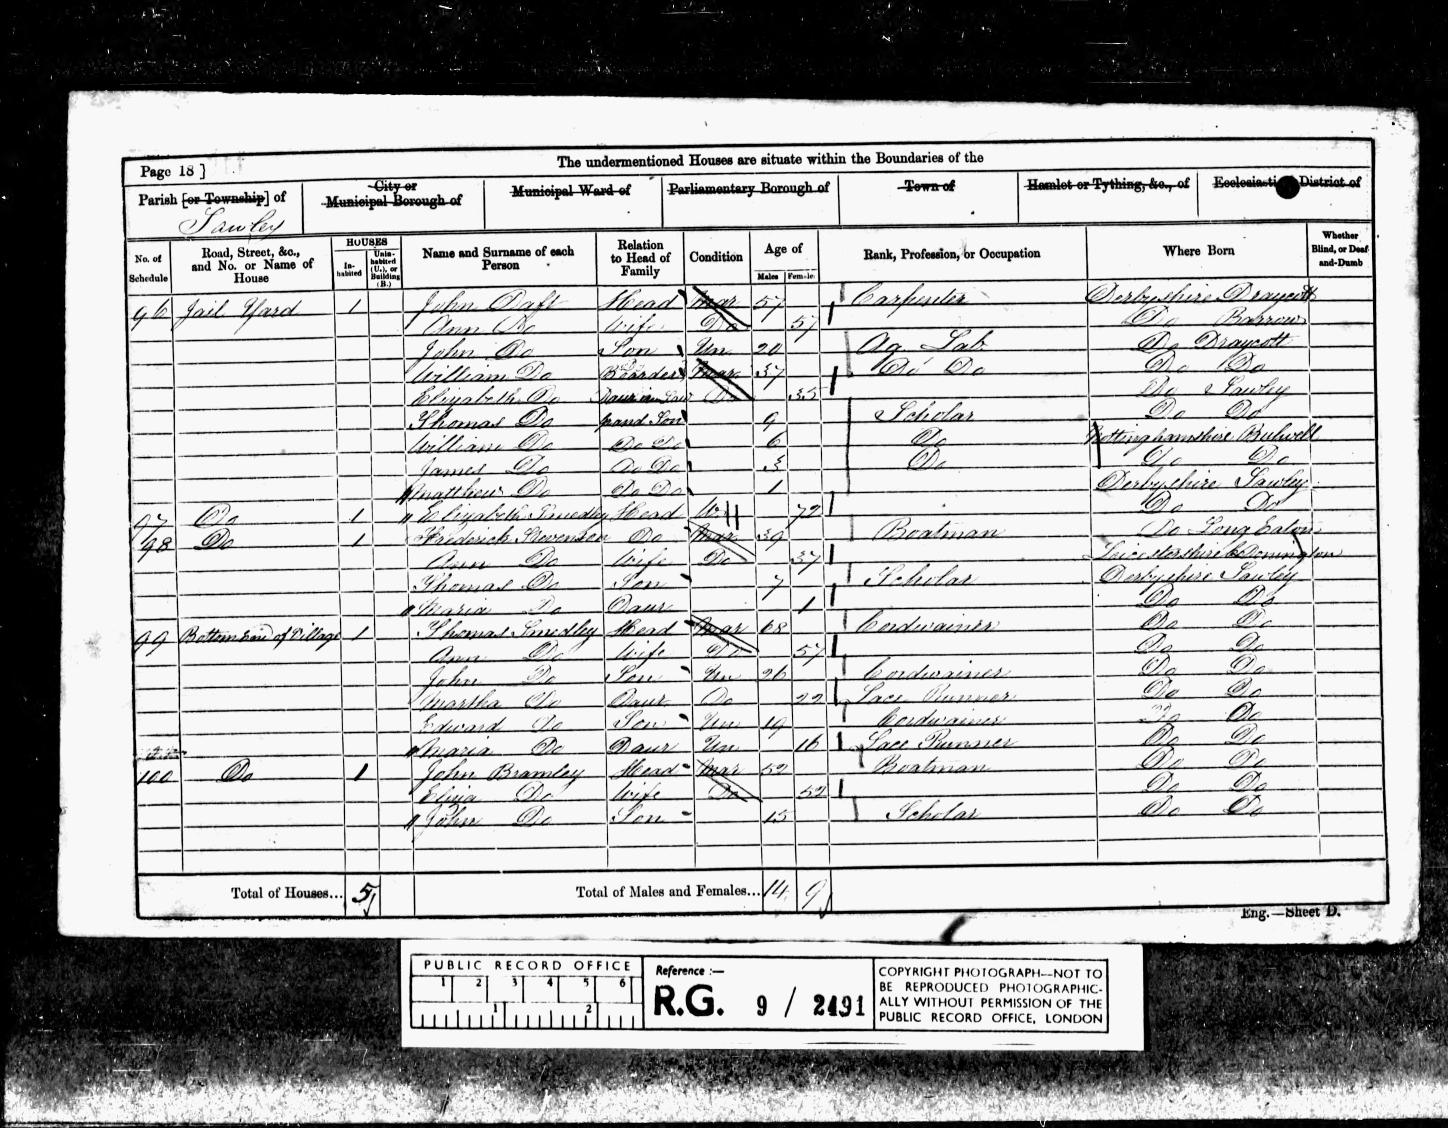 The undermentioned Houses are situate within the Boundaries of the
Page 18 ]
Parish [or Township] of
Sawley
City or
Municipal Borough of
Municipal Ward of
Parliamentary Borough of
Town of
Hamlet or Tything, &c., of
Ecclesiastical District of
No. of Schedule
Road, Street, &c., and No. or Name of House
HOUSES
In-habited
Unin-habited (U.), or Building (B.)
Name and Surname of each Person
Relation to Head of Family
Condition
Age of
Males
Females
Rank, Profession, or Occupation
Where Born
Whether Blind, or Deaf-and-Dumb
96 Jail Yard 1 John Daft Head Mar 57 Carpenter Derbyshire Draycott
Ann Do Wife Do 57 Do Barrow
John Do Son Un 20 Ag Lab Do Draycott
William Do Boarder Mar 37 Do Do Do Do
Elizabeth Do Daur in Law Do 35 Do Sawley
Thomas Do Grand Son 9 Scholar Do Do
William Do Do Do 6 Do Nottinghamshire Bulwell
James Do Do Do 3 Do Do Do
Matthew Do Do Do 1 Derbyshire Sawley
97 Do 1 Elizabeth Smedley Head W 72 Do Do
98 Do 1 Frederick Stevenson Do Mar 39 Boatman Do Long Eaton
Ann Do Wife Do 37 Leicestershire C Donington
Thomas Do Son 7 Scholar Derbyshire Sawley
Maria Do Daur 1 Do Do
99 Bottom End of Village 1 Thomas Smedley Head Mar 68 Cordwainer Do Do
Ann Do Wife Do 57 Do Do
John Do Son Un 26 Cordwainer Do Do
Martha Do Daur Do 22 Lace Runner Do Do
Edward Do Son Un 19 Cordwainer Do Do
Maria Do Daur Un 16 Lace Runner Do Do
100 Do 1 John Bramley Head Mar 52 Boatman Do Do
Eliza Do Wife Do 52 Do Do
John Do Son 15 Scholar Do Do
Total of Houses... 5
Total of Males and Females... 14 9
Eng.—Sheet D.
PUBLIC RECORD OFFICE
1 2 3 4 5 6
1 2
Reference :—
R.G. 9 / 2491
COPYRIGHT PHOTOGRAPH—NOT TO
BE REPRODUCED PHOTOGRAPHIC-
ALLY WITHOUT PERMISSION OF THE
PUBLIC RECORD OFFICE, LONDON